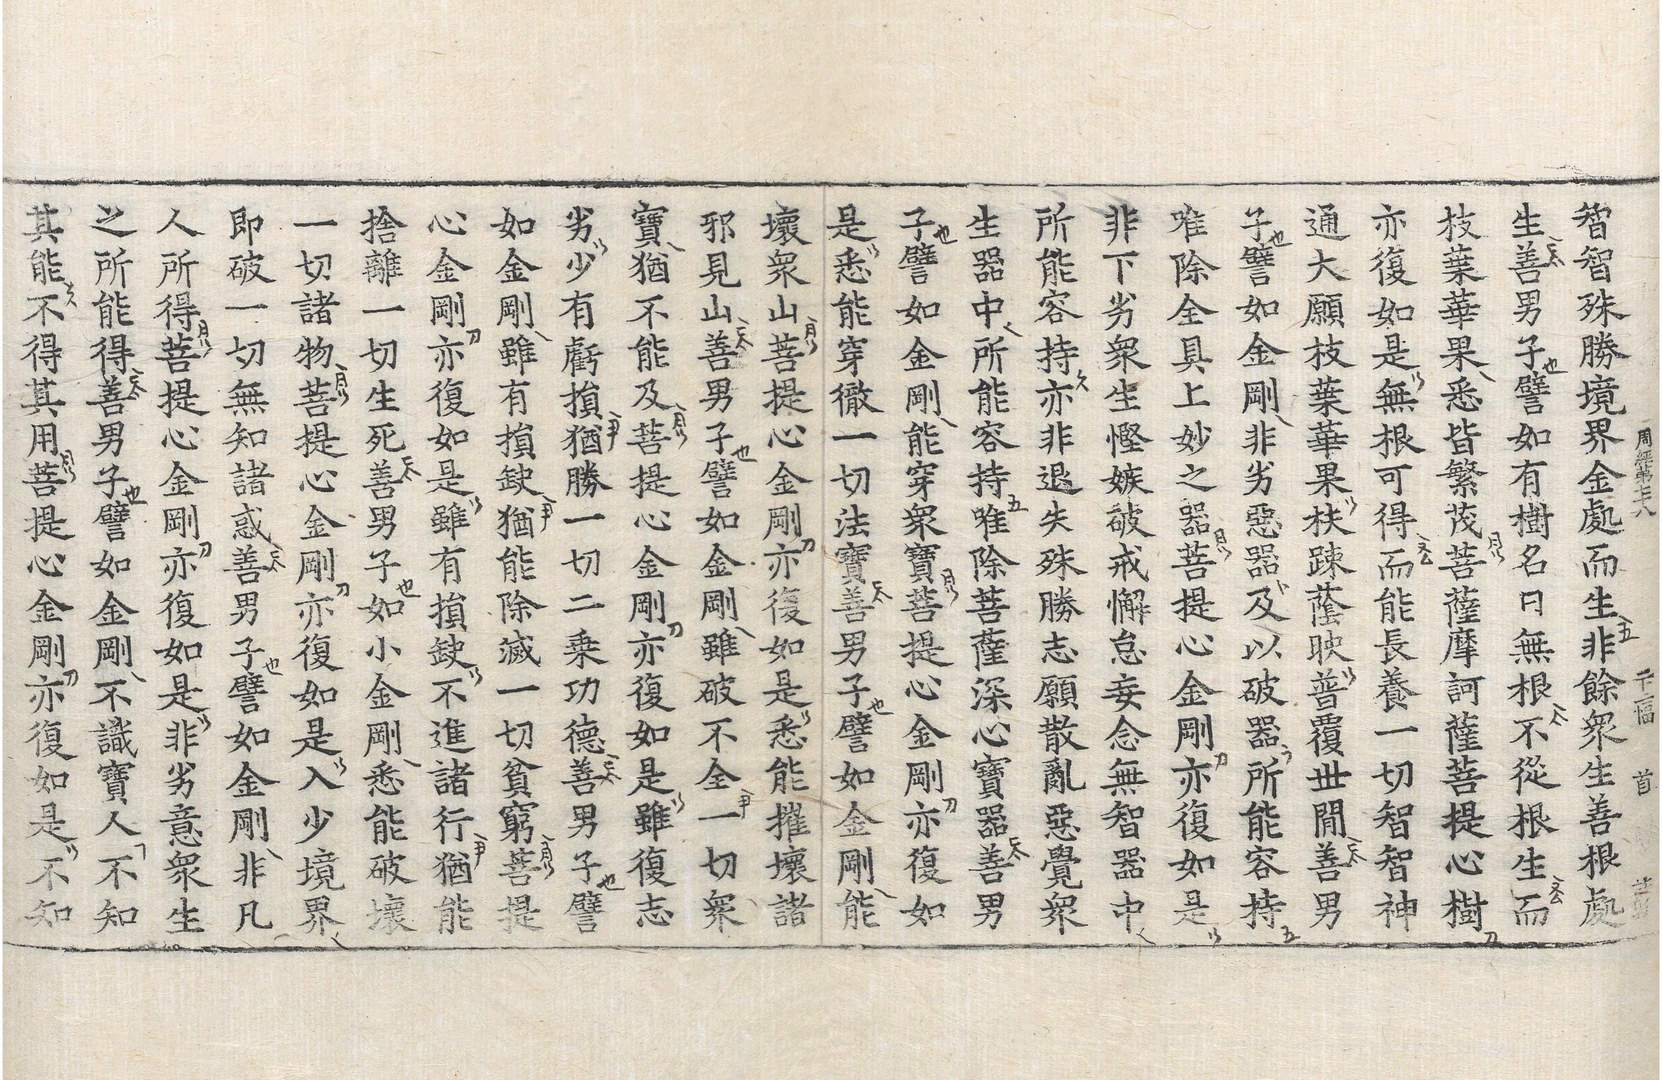 智智殊勝境界金處而生非餘衆生善根處
生善男子譬如有樹名曰無根不從根生而
枝葉華果悉皆繁茂菩薩摩訶薩菩提心樹
亦復如是無根可得而能長養一切智智神
通大願枝葉華果扶踈蔭映普覆世間善男
子譬如金剛非劣惡器及以破器所能容持
唯除全具上妙之器菩提心金剛亦復如是
非下劣衆生慳嫉破戒懈怠妄念無智器中
所能容持亦非退失殊勝志願散亂惡覺衆
生器中所能容持唯除菩薩深心寶器善男
子譬如金剛能穿衆寶菩提心金剛亦復如
是悉能穿徹一切法寶善男子譬如金剛能
壞衆山菩提心金剛亦復如是悉能摧壞諸
邪見山善男子譬如金剛雖破不全一切衆
寶猶不能及菩提心金剛亦復如是雖復志
劣少有虧損猶勝一切二乗功德善男子譬
如金剛雖有損缺猶能除滅一切貧窮菩提
心金剛亦復如是雖有損缺不進諸行猶能
捨離一切生死善男子如小金剛悉能破壞
一切諸物菩提心金剛亦復如是入少境界
即破一切無知諸惑善男子譬如金剛非凡
人所得菩提心金剛亦復如是非劣意衆生
之所能得善男子譬如金剛不識寶人不知
其能不得其用菩提心金剛亦復如是不知